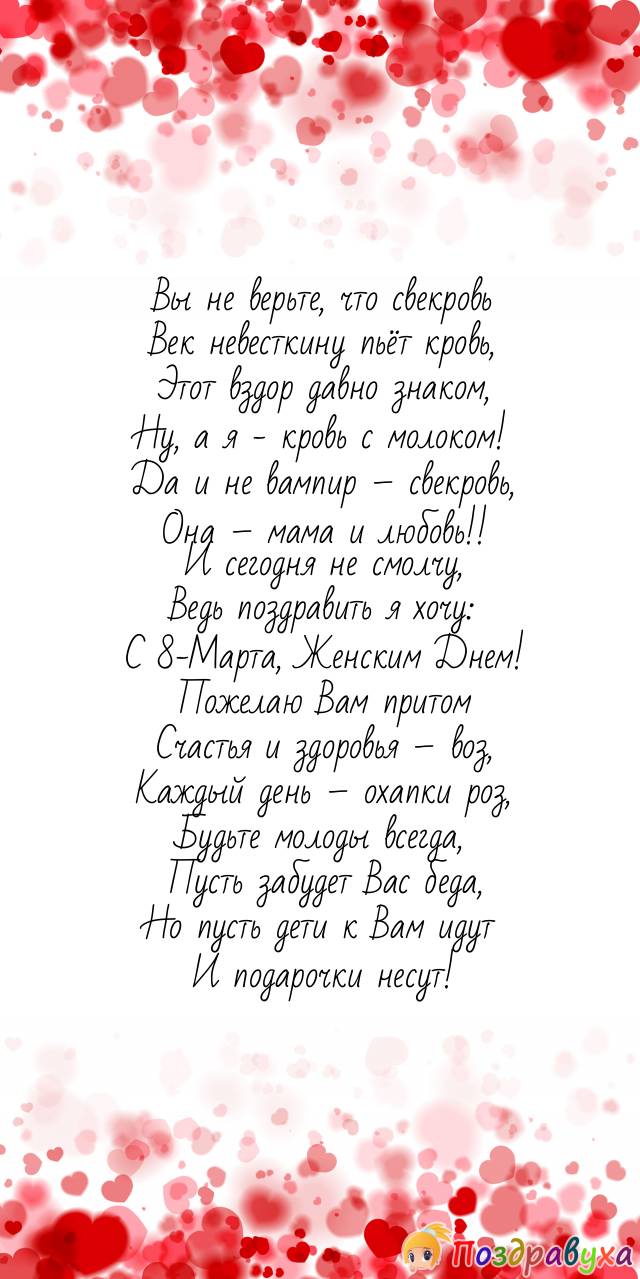 Вы не верьте, что свекровь
Век невесткину пьёт кровь,
Этот вздор давно знаком,
Ну, а я - кровь с молоком!
Да и не вампир – свекровь,
Она – мама и любовь!!
И сегодня не смолчу,
Ведь поздравить я хочу:
С 8-Марта, Женским Днем!
Пожелаю Вам притом
Счастья и здоровья – воз,
Каждый день – охапки роз,
Будьте молоды всегда,
Пусть забудет Вас беда,
Но пусть дети к Вам идут
И подарочки несут!
Поздравуха